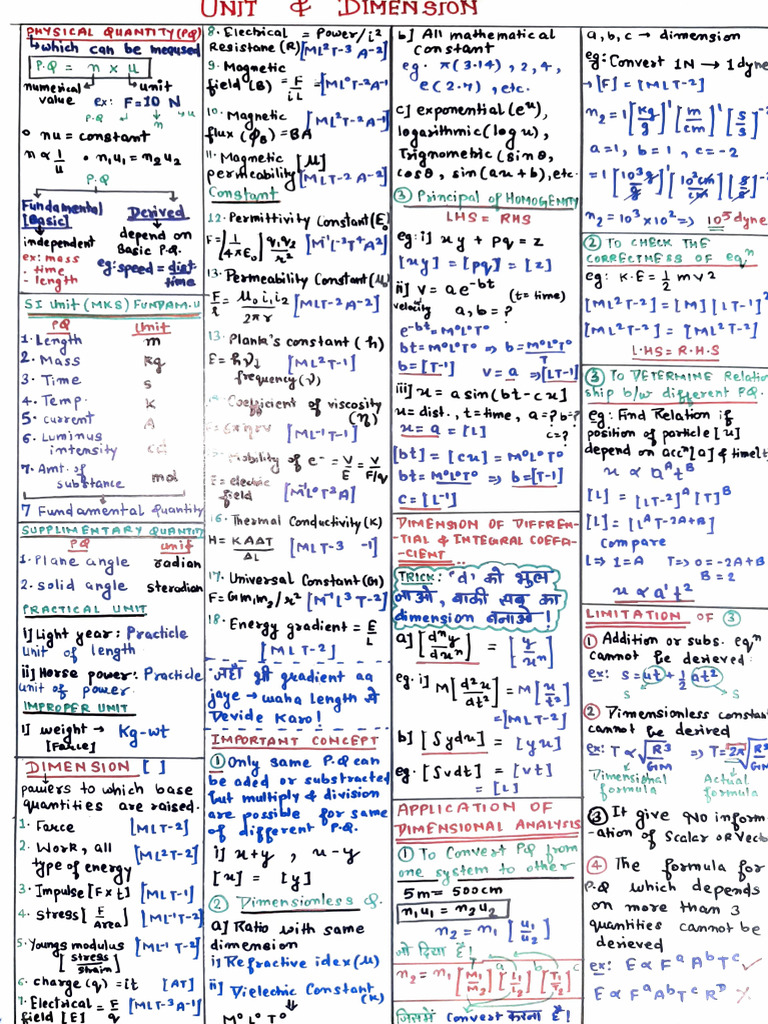 UNIT & DIMENSION
PHYSICAL QUANTITY(PQ)
↳which can be meqused
P.Q = n × u
numerical value
unit
ex: F=10 N
P.Q ↓ n u
o nu = constant
n ∝ 1/u • n1u1 = n2u2
P.Q
Fundamental [Basic]
Derived
independent
depend on Basic P.Q.
ex: mass
• time
- length
eg: speed = dist/time
SI Unit (MKS) FUNDAM.U
PQ Unit
1. Length m
2. Mass kg
3. Time s
4. Temp. K
5. current A
6. Luminus intensity cd
7. Amt. of substance mol
7 Fundamental Quantity
SUPPLIMENTARY QUANTITY
PQ Unit
1. Plane angle radian
2. solid angle steradian
PRACTICAL UNIT
i] Light year: Practicle
unit of length
ii] Horse power: Practicle
unit of power.
IMPROPER UNIT
1] weight → Kg-wt
[Force]
DIMENSION [ ]
powers to which base
quantities are raised.
1. Force [MLT-2]
2. Work, all type of energy [ML2T-2]
3. Impulse [F×t] [MLT-1]
4. Stress [F/Area] [ML-1T-2]
5. Youngs modulus [stress/strain] [ML-1 T-2]
6. charge (q) = it [AT]
7. Electrical field [E] = F/q [MLT-3A-1]
8. Electrical Resistane (R) = Power/i2 [ML2T-3 A-2]
9. Magnetic field (B) = F/iL = [ML0T-2A-1]
10. Magnetic flux (ϕB) = BA [ML2T-2 A-1]
11. Magnetic permeability [μ] [MLT-2 A-2]
Constant
12. Permittivity Constant (E0)
F = (1/4πE0) q1q2/r2 [M-1L-3T4A2]
13. Permeability Constant (μ0)
F/l = μ0 i1 i2/2πr [MLT-2A-2]
13. Plank's constant (h)
E = hν [ML2T-1]
frequency (ν)
Coefficient of viscosity (η)
F = 6πηrv [ML-1T-1]
Mobility of e- = V/E = V/F/q
E = electric field [M-1L0T2A]
16. Thermal Conductivity (K)
H = KAΔT/ΔL [MLT-3 -1]
17. Universal Constant (G)
F = Gm1m2/r2 [M-1L3T-2]
18. Energy gradient = E/L
[MLT-2]
जहाँ भी gradient aa
jaye → waha length से
Devide Karo!
IMPORTANT CONCEPT
① Only same P.Q can
be aded or substracted
but multiply & division
are possible for same
of different P.Q.
i] x+y , x-y
[x] = [y]
② Dimensionless Q.
a] Ratio with same
dimension
i] Refractive idex (μ)
ii] Dielectric Constant (K)
M0L0T0
b] All mathematical
constant
eg. π(3.14), 2, 4,
e(2.7), etc.
c] exponential (e^x),
logarithmic (log x),
Trignometric (sin θ,
cos θ, sin(ax+b), etc.
③ Principal of HOMOGENITY
LHS = RHS
eg: i] xy + pq = z
[xy] = [pq] = [z]
ii] v = a e^-bt (t = time)
velocity a, b = ?
e^-bt = M0L0T0
bt = M0L0T0 ⇒ b = M0L0T0/T
b = [T-1] v = a ⇒ [LT-1]
iii] x = a sin(bt - cx)
x = dist., t = time, a = ? b = ?
c = ?
x = a = [L]
[bt] = [cx] = M0L0T0
bt = M0L0T0 ⇒ b = [T-1]
c = [L-1]
DIMENSION OF DIFFREN-
TIAL & INTEGRAL COEFFA-
CIENT.
TRICK: 'd' को भुल
जाओ, बाकी सब का
dimension बनाओ!
a] [d^n y/dx^n] = [y/x^n]
eg. i] M[d2x/dt2] = M[x/t2]
= [MLT-2]
b] [∫ydx] = [yx]
eg. [∫vdt] = [vt]
= [L]
APPLICATION OF
DIMENSIONAL ANALYSIS
① To Convert PQ from
one system to other
5m = 500cm
n1u1 = n2u2
n2 = n1 [u1/u2]
जो दिया है!
n2 = n1 [M1/M2]^a [L1/L2]^b [T1/T2]^c
जिसमें convert करना है!
a, b, c → dimension
eg: Convert 1N → 1 dyne
→ [F] = [MLT-2]
n2 = 1[kg/g]^1 [m/cm]^1 [s/s]^-2
a=1, b=1, c=-2
= 1[10^3g/g]^1 [10^2cm/cm]^1 [s/s]^-2
n2 = 10^3 × 10^2 ⇒ 10^5 dyne
② TO CHECK THE
CORRECTNESS OF eq^n
eg: K.E = 1/2 mv2
[ML2T-2] = [M] [LT-1]^2
[ML2T-2] = [ML2T-2]
L.HS = R.H.S
③ TO DETERMINE Relation
ship b/w different PQ.
eg: Find Relation if
position of particle [x]
depend on acc^n [a] & time[t]
x ∝ a^A t^B
[L] = [LT-2]^A [T]^B
[L] = [L^A T-2A+B]
Compare
L ⇒ 1 = A T ⇒ 0 = -2A+B
B = 2
x ∝ a^1 t^2
LIMITATION OF ③
① Addition or subs. eq^n
cannot be derieved.
ex: s = ut + 1/2 at2
s s
② Dimensionless constant
cannot be derived
ex: T ∝ √R3/GM ⇒ T = 2π√R3/GM
Dimensional formula
Actual formula
③ It give no inform
-ation of Scalar or Vector
④ The formula for
P.Q which depends
on more than 3
quantities cannot be
derieved
ex: E ∝ F^a A^b T^c ✓
E ∝ F^a A^b T^c R^D ✗